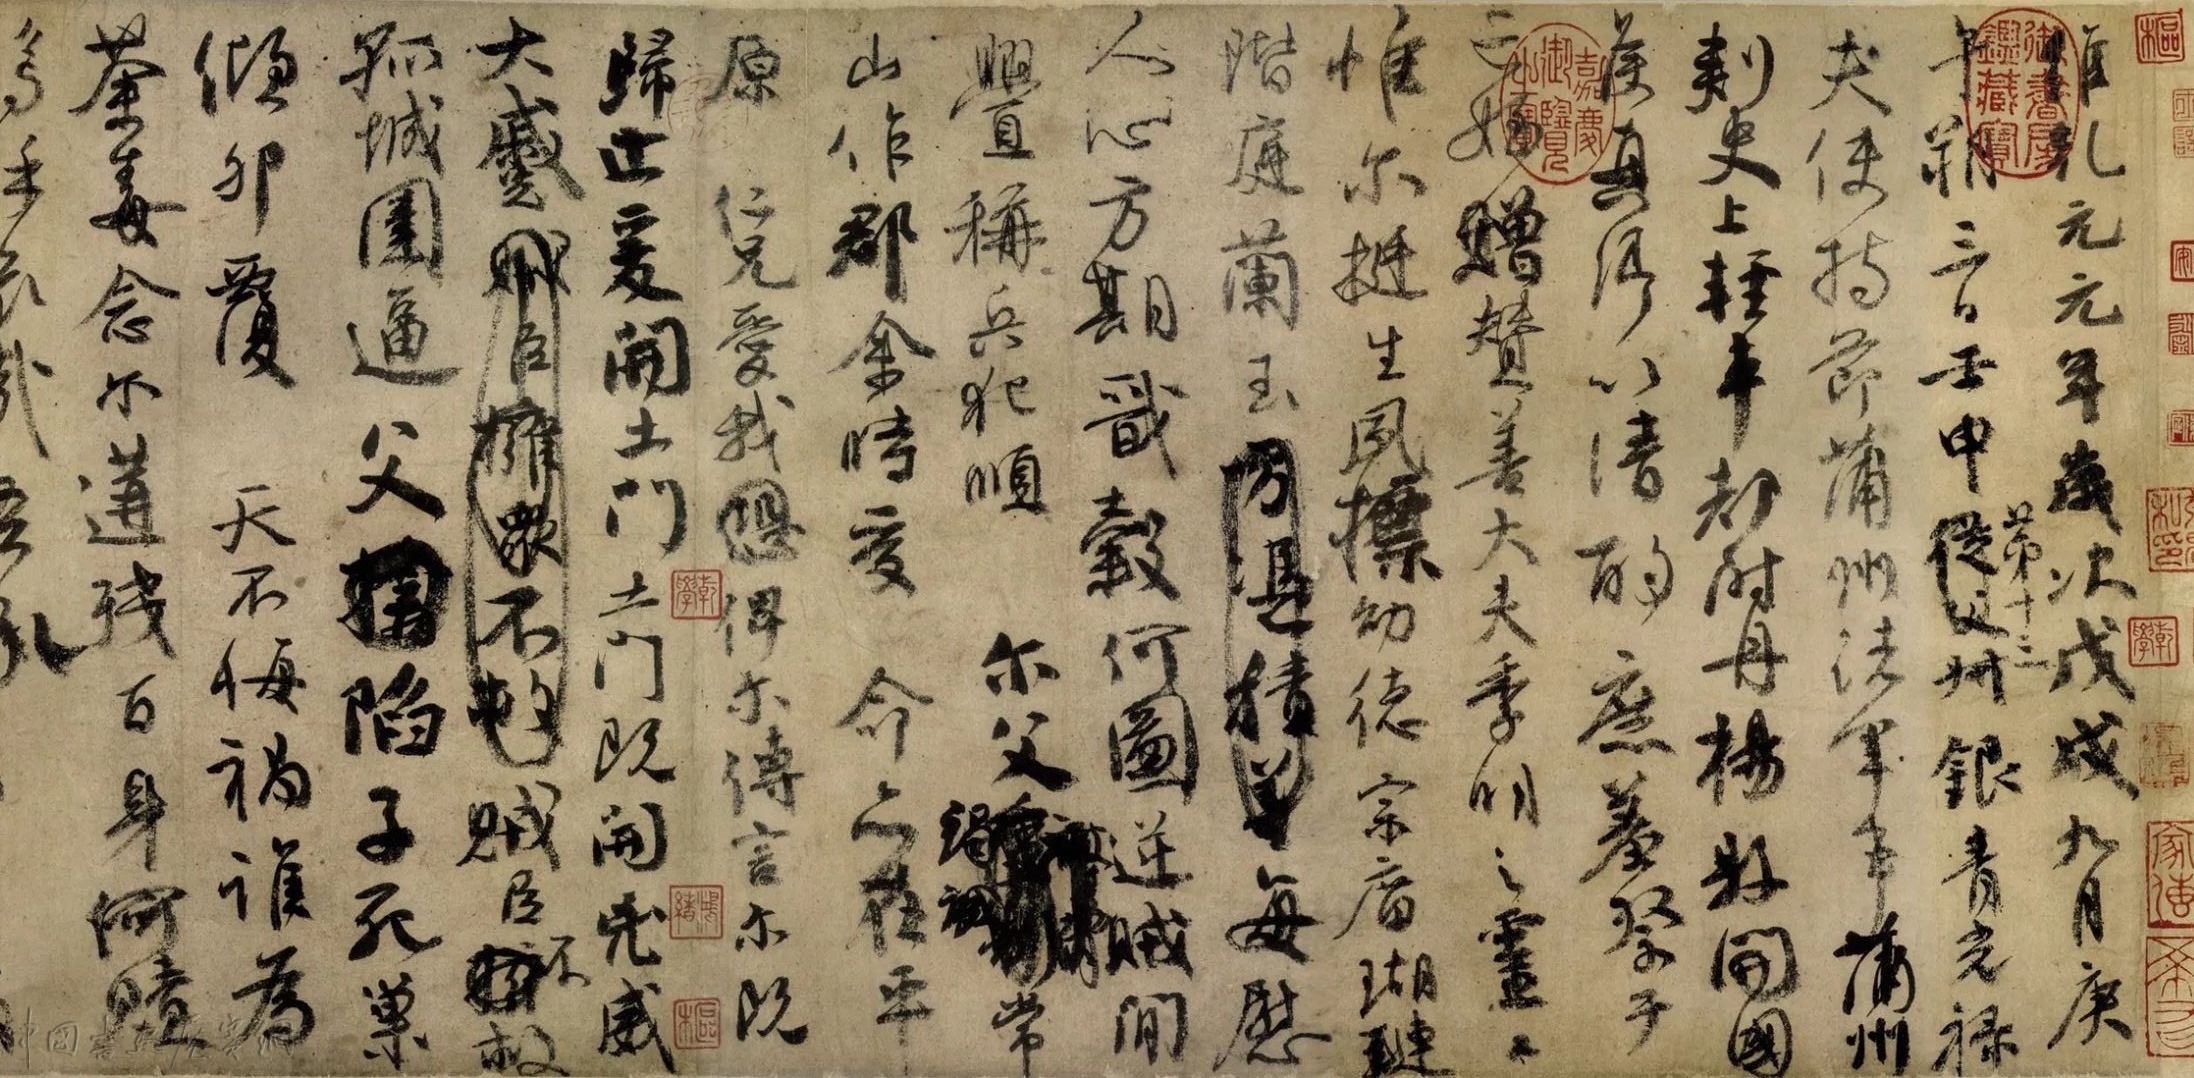 維乾元元年歲次戊戌九月庚
午朔三日壬申第十三從父叔銀青光祿
夫使持節蒲州諸軍事蒲州
刺史上輕車都尉丹楊縣開國
侯真卿以清酌庶羞祭于
亡姪贈贊善大夫季明之靈曰
惟尔挺生夙標幼德宗廟瑚璉
階庭蘭玉方憑積善每慰
人心方期戩穀何圖逆賊間
釁稱兵犯順尔父竭誠常
山作郡余時受命亦在平
原仁兄愛我恐俾尔傳言尔既
歸止爰開土門土門既開兇威
大蹙賊臣擁衆不救賊臣不救
孤城圍逼父陷子死巢
傾卵覆天不悔禍誰為
荼毒念尔遘殘百身何贖
嗚乎哀哉吾承
御書房鑑藏寶
嘉慶御覽之寶
樞